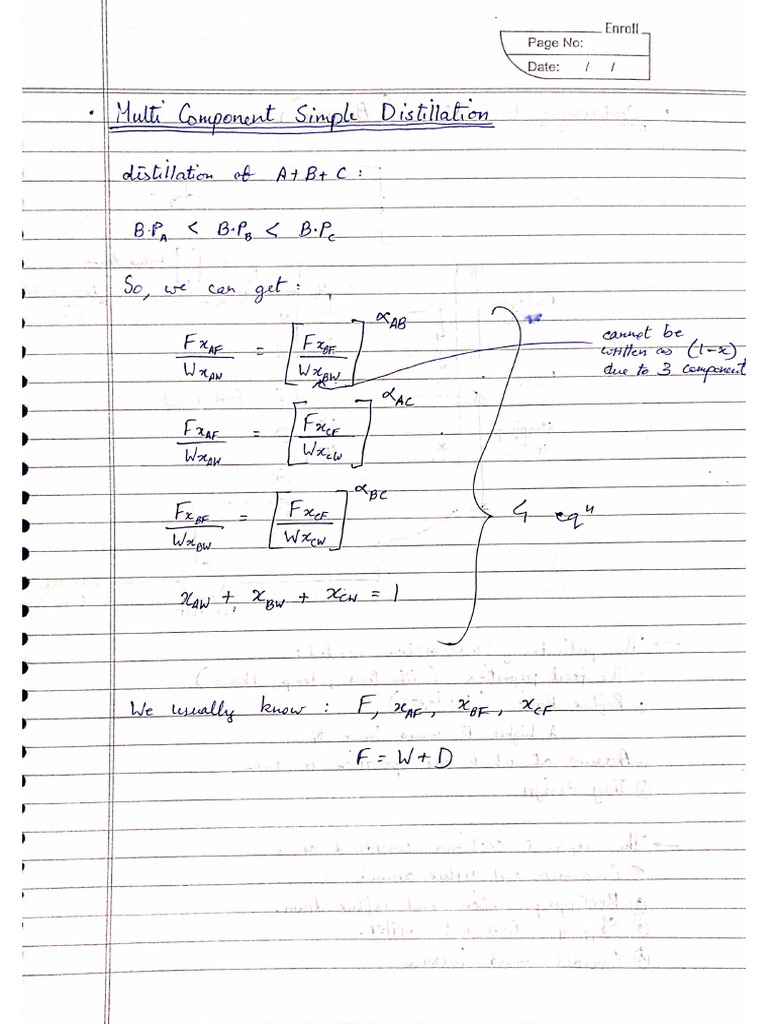 Enroll
Page No:
Date: / /
• Multi Component Simple Distillation
distillation of A+B+C :
B.P_A < B.P_B < B.P_C
So, we can get :
Fx_AF / Wx_AW = [Fx_BF / Wx_BW]^α_AB
cannot be
written as (1-x)
due to 3 component
Fx_AF / Wx_AW = [Fx_CF / Wx_CW]^α_AC
Fx_BF / Wx_BW = [Fx_CF / Wx_CW]^α_BC
4 eqⁿ
x_AW + x_BW + x_CW = 1
We usually know : F, x_AF, x_BF, x_CF .
F = W + D